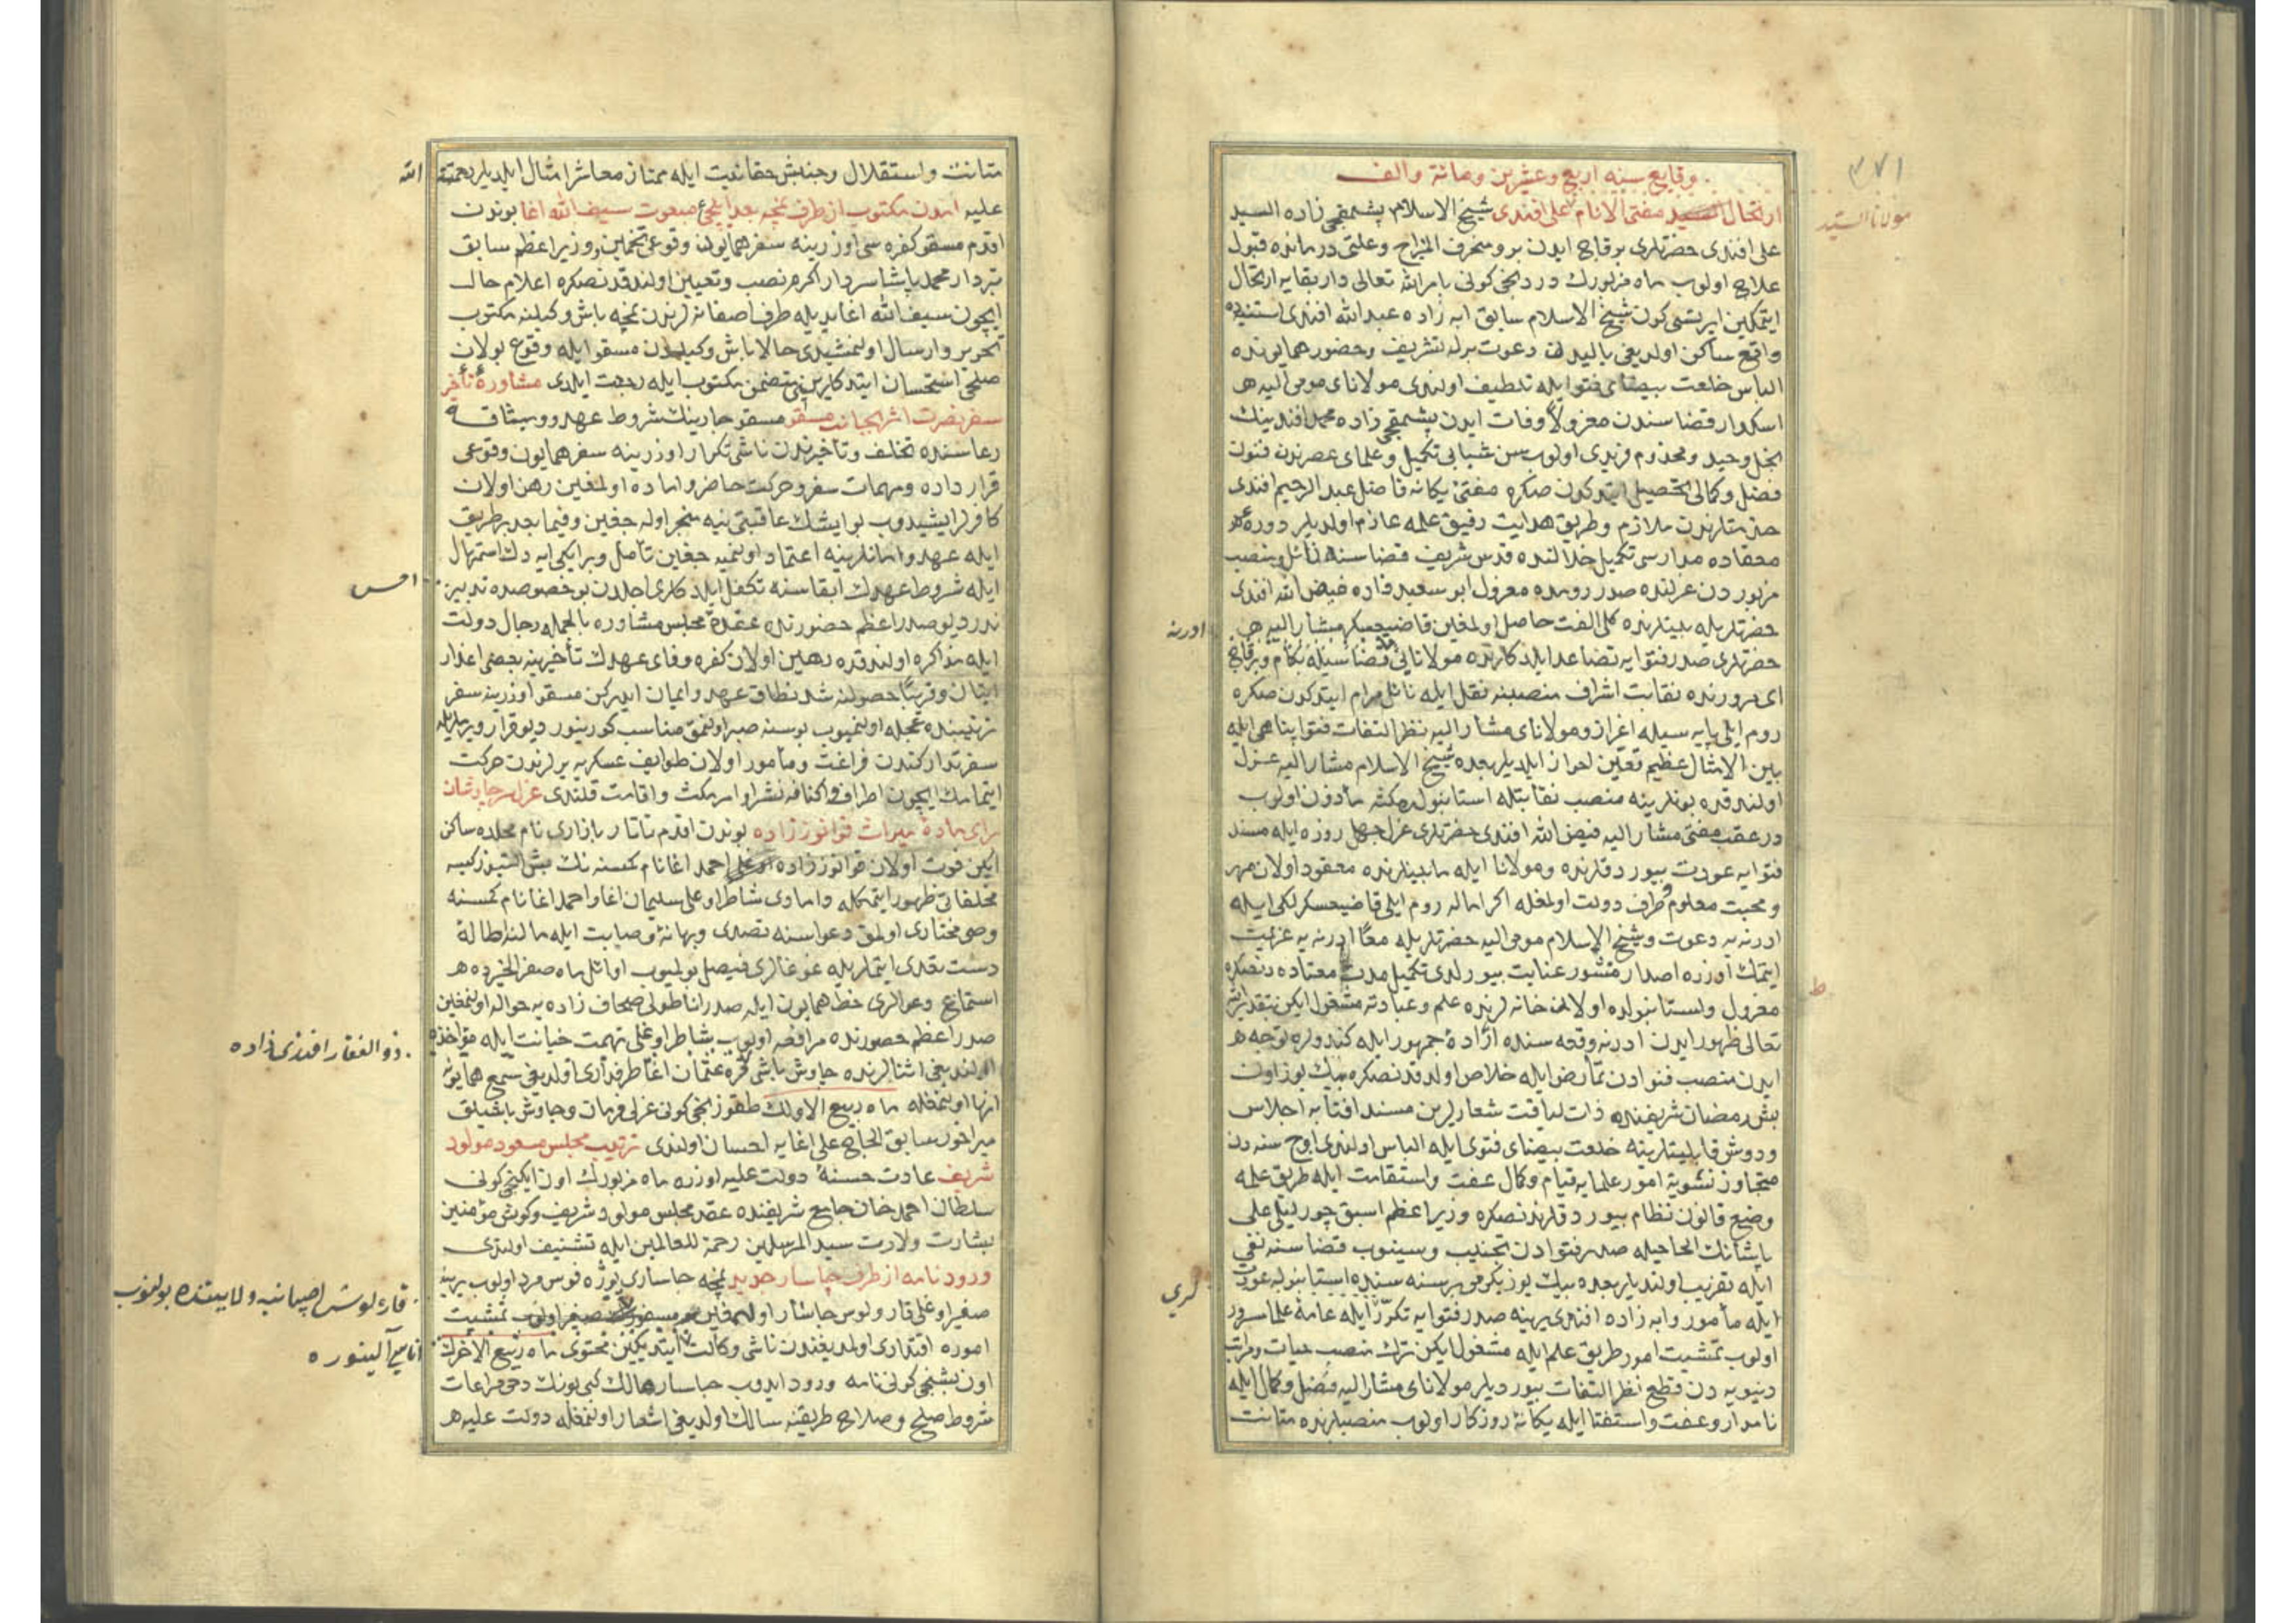 ٣٧١
مولانا السيد
وقايع سنه اربع وعشرين ومائة والف
ارتحال السيد مفتى الانام على افندى شيخ الاسلام پشمقجى زاده السيد
على افندى حضرتلرى برقاچ ايدن برو منحرف المزاج وعلتى درمانده قبول
علاج اولوب ماه مزبورك دردنجى كونى بامر الله تعالى دار بقايه ارتحال
ايتمكين ايرتسى كون شيخ الاسلام سابق ابه زاده عبدالله افندى استنيه ده
واقع ساكن اولديغى ياليدن دعوت برله تشريف وحضور همايونده
الباس خلعت بيضاى فتوا ايله تلطيف اولندى مولاناى مومى اليه
اسكدار قضاسندن معزولاً وفات ايدن پشمقجى زاده محمد افندينك
نجل وحيد ومخدوم فريدى اولوب سن شبابى تكميل وعلماى عصرندن فنون
فضل وكمالى تحصيل ايتدكدن صكره مفتئ يكانه فاضل عبدالرحيم افندى
حضرتلرندن ملازم وطريق هدايت رفيق علمه عازم اولديلر دوره
معتاده مدارسى تكميل خلالنده قدس شريف قضاسنه نائل ومنصب
مزبوردن عزلنده صدر رومده معزول ابو سعيد زاده فيض الله افندى
حضرتلريله بينلرنده كلى الفت حاصل اولمغين قاضيعسكر مشار اليه
ادرنه
حضرتلرى صدر فتوايه تصاعد ايلدكلرنده مولانايى قضاسيله بكام وبرقاچ
اى مرورنده نقابت اشراف منصبنه نقل ايله نائل مرام ايتدكدن صكره
روم ايلى پايه سيله اعزاز ومولاناى مشار اليه نظر التفات فتوا پناهى ايله
بين الامثال عظيم تعين احراز ايلديلر بعده شيخ الاسلام مشار اليه عزل
اولندقده بونلرينه منصب نقابتله استانبولده مكثه مأذون اولوب
در عقب مفتئ مشار اليه فيض الله افندى حضرتلرى عزل چهل روزه ايله مسند
فتوايه عودت بيوردقلرنده ومولانا ايله مابينلرنده معقود اولان مهر
ومحبت معلوم طرف دولت اولمغله اكراما له روم ايلى قاضيعسكرلكى ايله
ادرنه يه دعوت وشيخ الاسلام مومى اليه حضرتلريله معًا ادرنه يه عزيمت
ايتمك اوزره اصدار منشور عنايت بيورلدى تكميل مدت معتاده دنصكره
معزول واستانبولده اولان خانه لرنده علم وعبادته مشغول ايكن بتقدير الله
تعالى ظهور ايدن ادرنه وقعه سنده ارادۀ جمهور ايله كندولره توجه
ايدن منصب فتوادن تمارض ايله خلاص اولدقدنصكره بيك يوز اون
بش رمضان شريفنده ذات لياقت شعارلرين مسند افتايه اجلاس
ودوش قابليتلرينه خلعت بيضاى فتوى ايله الباس اولندى اوچ سنه دن
متجاوز تسوية امور علمايه قيام وكمال عفت واستقامت ايله طريق علمه
وضع قانون نظام بيوردقلرندنصكره وزير اعظم اسبق چورليلى على
پاشانك الحاحيله صدر فتوادن تجنيب وسينوب قضاسنه نفى
ايله تقريب اولنديلر بعده بيك يوز يكرمى بر سنه سنده استانبوله عودت
ايله مأمور وابه زاده افندى يرينه صدر فتوايه تكرر ايله عامۀ علما مسرور
اولوب تمشيت امور طريق علم ايله مشغول ايكن ترك منصب حيات ومراتب
دنيويه دن قطع نظر التفات بيورديلر مولاناى مشار اليه فضل وكمال ايله
نامدار وعفت واستغنا ايله يكانۀ روزكار اولوب منصبلرنده متانت
متانت واستقلال وجنبش حقانيت ايله ممتاز معاشر امثال ايلديلر رحمة الله
عليه آمدن مكتوب از طرف نمچه بعد ايلچئ مبعوث سيف الله اغا بوندن
اقدم مسقو كفره سى اوزرينه سفر همايون وقوعى تخمين ووزير اعظم سابق
بالطه جى محمد پاشا سردار اكرم نصب وتعيين اولندقدنصكره اعلام حال
ايچون سيف الله اغا يديله طرف اصفانه لرندن نمچه باش وكيلنه مكتوب
تحرير وارسال اولنمشيدى حالا باش وكيلدن مسقو ايله وقوع بولان
صلحى استحسان ايتدكلرينى متضمن مكتوب ايله رجعت ايلدى مشاورۀ تأخير
سفر نصرت اثر بجانب مسقو مسقو چارينك شروط عهد وميثاقه
رعاسنده تخلف وتأخيرندن ناشى تكرار اوزرينه سفر همايون وقوعى
قرار داده ومهمات سفر وحركت حاضر واماده اولمغين رهن اولان
كافرلر ايشيدوب بو ايشك عاقبتى نيه منجر اوله جغين وفيما بعد بر طريق
ايله عهد وامانلرينه اعتماد اولنميه جغين تأمل وبر ايكى ايه دك استمهال
ايله شروط عهدك ابقاسنه تكفل ايلدكلرى اجلدن بو خصوصده تدبير
ندر ديو صدر اعظم حضورنده عقدۀ مجلس مشاوره بالجمله رجال دولت
ايله مذاكره اولندقده رهين اولان كفره وفاى عهدك تأخيرينه بعضى اعذار
اتيان وقريبًا حصولنه شد نطاق عهد وايمان ايدركن مسقو اوزرينه سفر
ترتيبنده عجله اولنميوب بو سنه صبر اولنمق مناسب كورينور ديو قرار ويريلوب
سفر تداركندن فراغت ومأمور اولان طوايف عسكريه يرلرندن حركت
ايتمامك ايچون اطراف واكنافه نشر اوامر مكث واقامت قلندى عزل سر چاوشان
براى مادۀ ميراث قوانوز زاده بوندن اقدم تاتار بازارى نام محلده ساكن
ايكن فوت اولان قوانوز زاده احمد اغا نام كمسنه نك بش التيوز كيسه
مخلفاتى ظهور ايتمكله وامادى شاطر اوغلى سليمان اغا واحمد اغا نام كمسنه
وصى مختارى اولمق دعواسنه تصدى وبهانۀ وصايت ايله مالنه اطالۀ
دست تعدى ايتملريله غوغالرى فيصل بولميوب اوائل ماه صفر الخيرده
استماع دعوالرى خط همايون ايله صدر اناطولى صحاف زاده يه حواله اولنمغين
ذو الفقار افندى زاده
صدر اعظم حضورنده مرافعه اولوب شاطر اوغلى تهمت خيانت ايله مؤاخذه
اولنديغى اثنالرنده چاوش باشى قره عثمان اغا طرفدارى اولديغى سمع همايونه
انها اولنمغله ماه ربيع الاولك طقوزنجى كونى عزلى فرمان وچاوش باشيلق
ميراخور سابق الحاج على اغايه احسان اولندى ترتيب مجلس مسعود مولود
شريف عادت حسنۀ دولت عليه اوزره ماه مزبورك اون ايكنجى كونى
سلطان احمد خان جامع شريفنده عقد مجلس مولود شريف وكوش مؤمنين
بشارت ولادت سيد المرسلين رحمة للعالمين ايله تشنيف اولندى
ورود نامه از طرف چاسار جديد نمچه چاسارى يوزه فوس مرد اولوب يرينه
صغير اوغلى قارولوس چاسار اولمغين تمشيت
قارولوس اسپانيه ولايتنده بولنوب
اناسى آلينوره
اموره اقتدارى اولمديغندن ناشى وكالت ايتديكين محتوى ماه ربيع الاخرك
اون بشنجى كونى نامه ورود ايدوب چاسار هالك كبى بونك دخى مراعات
شروط صلح وصلاح طريقنه سالك اولديغى اشعار اولنمغله دولت عليه